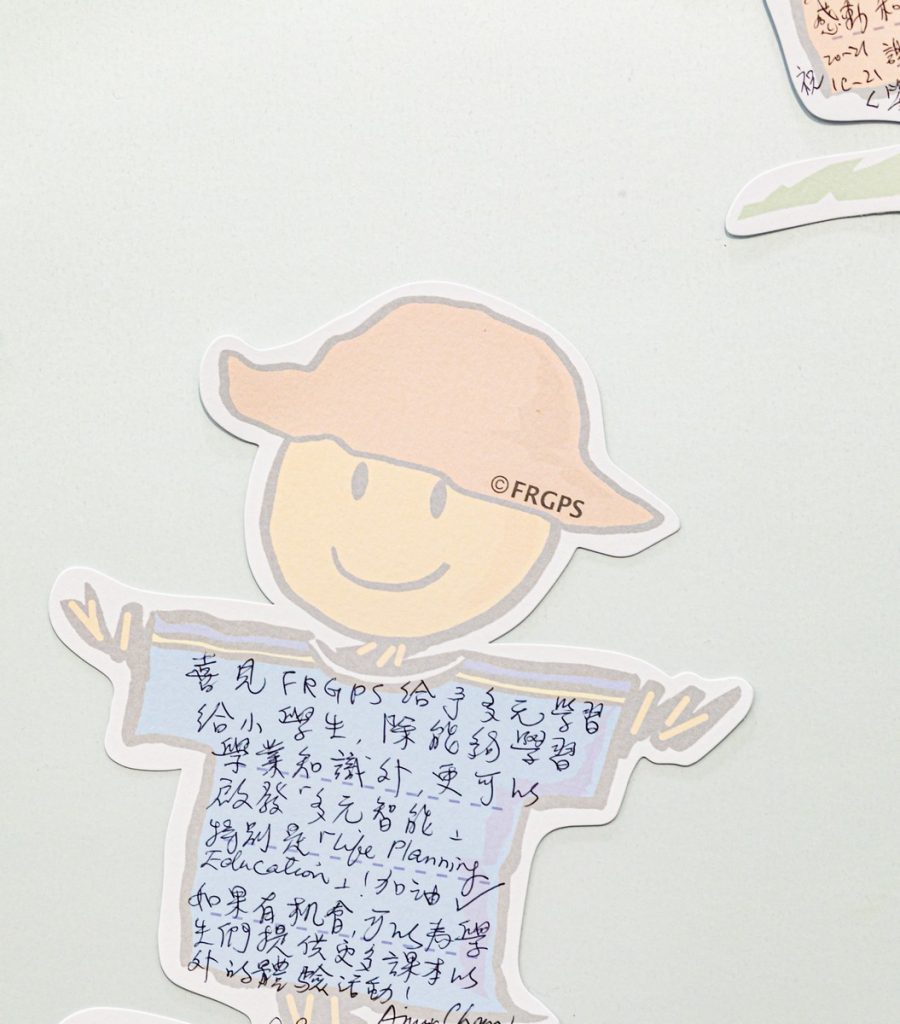 感動和
20-21
祝 1C-21
©FRGPS
喜見 FRGPS 給予多元學習
給小學生,除能夠學習
學業知識外,更可以
啟發「多元智能」
特別是「Life Planning
Education」!加油 ✓
如果有機會,可以為學
生們提供更多課本以
外的體驗活動!